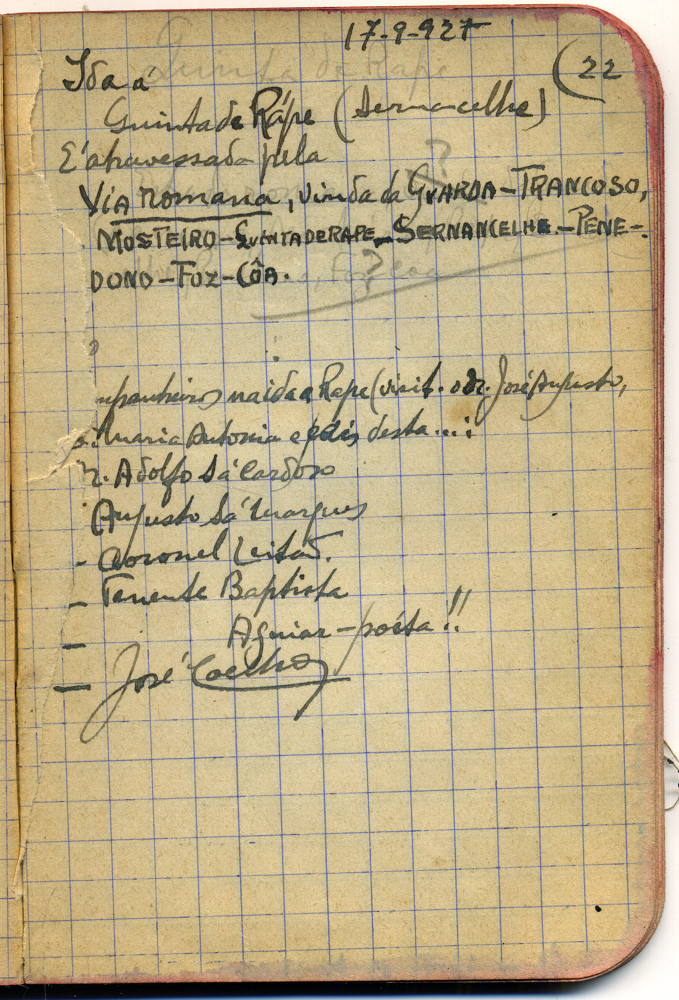 17-9-927
(22
Ida á
Quinta de Rápe (Sernancelhe)
É atravessada pela
Via Romana, vinda da GUARDA-TRANCOSO,
MOSTEIRO-QUINTA DE RAPE-SERNANCELHE.-PENE-
DONO-FOZ-CÔA.
mpanheiros na ida a Rape (visit. o dr. José Augusto,
Maria Antonia e pais desta...:
r. Adolfo Sá Cardoso
Augusto Sá Marques
- Coronel Leitão.
- Tenente Baptista
- Aguiar-poéta!!
- José Coelho